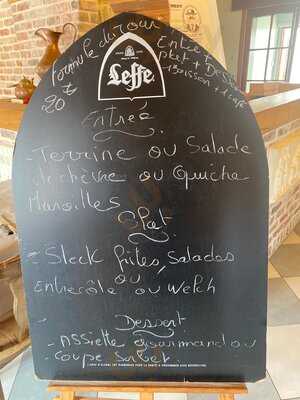 Formule du Jour
20 €
Entrée
plat + Dessert
+ Boisson + 1 café
Leffe
Entrée
- Terrine ou Salade
de chèvre ou Quiche
Maroilles
Plat
- Steck frites, Salades
ou
Entrecôte ou Welch
Dessert
- Assiette gourmand ou
- Coupe Sorbet.